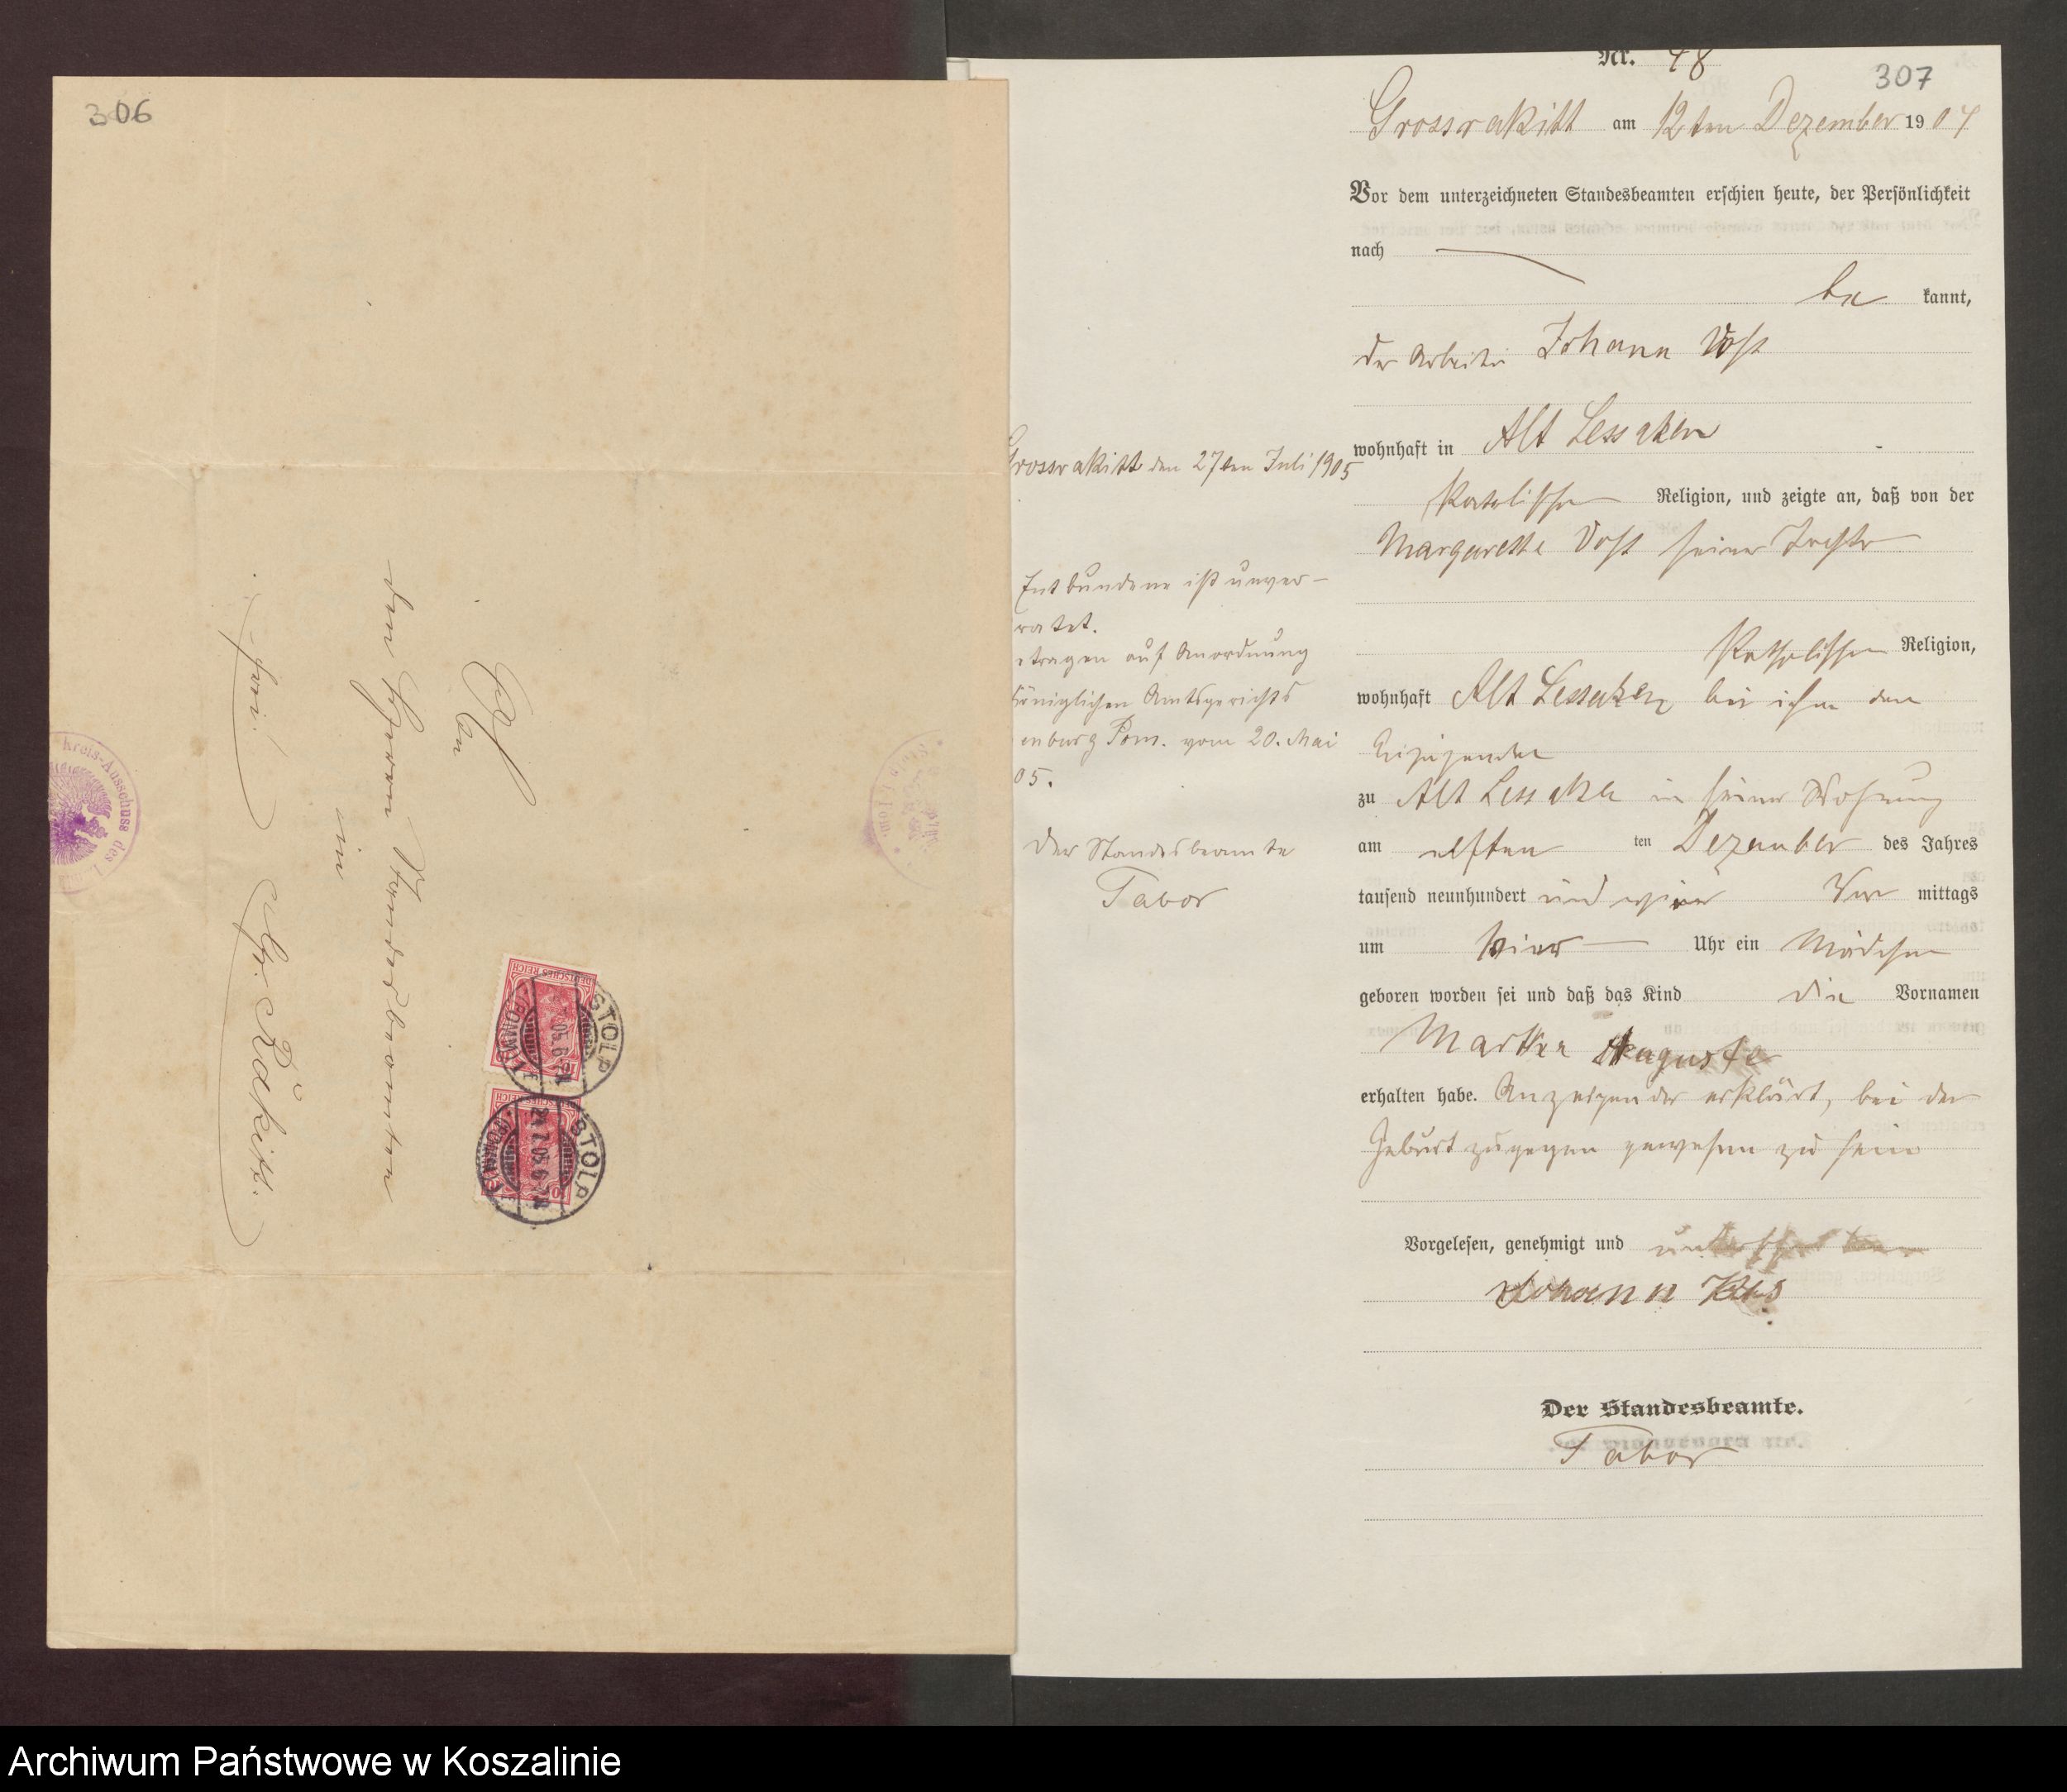 306
An
den Herrn Standesbeamten
in
frei! Gr. Rakitt.
Kreis-Ausschuss des
STOLP
(POMM)
DEUTSCHES REICH
10
STOLP
(POMM)
DEUTSCHES REICH
10
307
Nr. 48
Grossrakitt am 12ten Dezember 1904
Vor dem unterzeichneten Standesbeamten erschien heute, der Persönlichkeit
nach
be kannt,
der Arbeiter Johann Voss
wohnhaft in Alt Lessaken
katolischer Religion, und zeigte an, daß von der
Margarethe Voss seiner Tochter
katholischer Religion,
wohnhaft Alt Lessaken bei ihm dem
Anzeigenden
zu Alt Lessaken in seiner Wohnung
am elften ten Dezember des Jahres
tausend neunhundert und vier Vor mittags
um vier Uhr ein Mädchen
geboren worden sei und daß das Kind die Vornamen
Martha Auguste
erhalten habe. Anzeigender erklärt, bei der
Geburt zugegen gewesen zu sein
Vorgelesen, genehmigt und unterschrieben
Johann
Der Standesbeamte.
Tabor
Grossrakitt den 27ten Juli 1905
Entbundene ist unver-
ratet.
tragen auf Anordnung
Königlichen Amtsgerichts
enburg Pom. vom 20. Mai
05.
Der Standesbeamte
Tabor
Archiwum Państwowe w Koszalinie